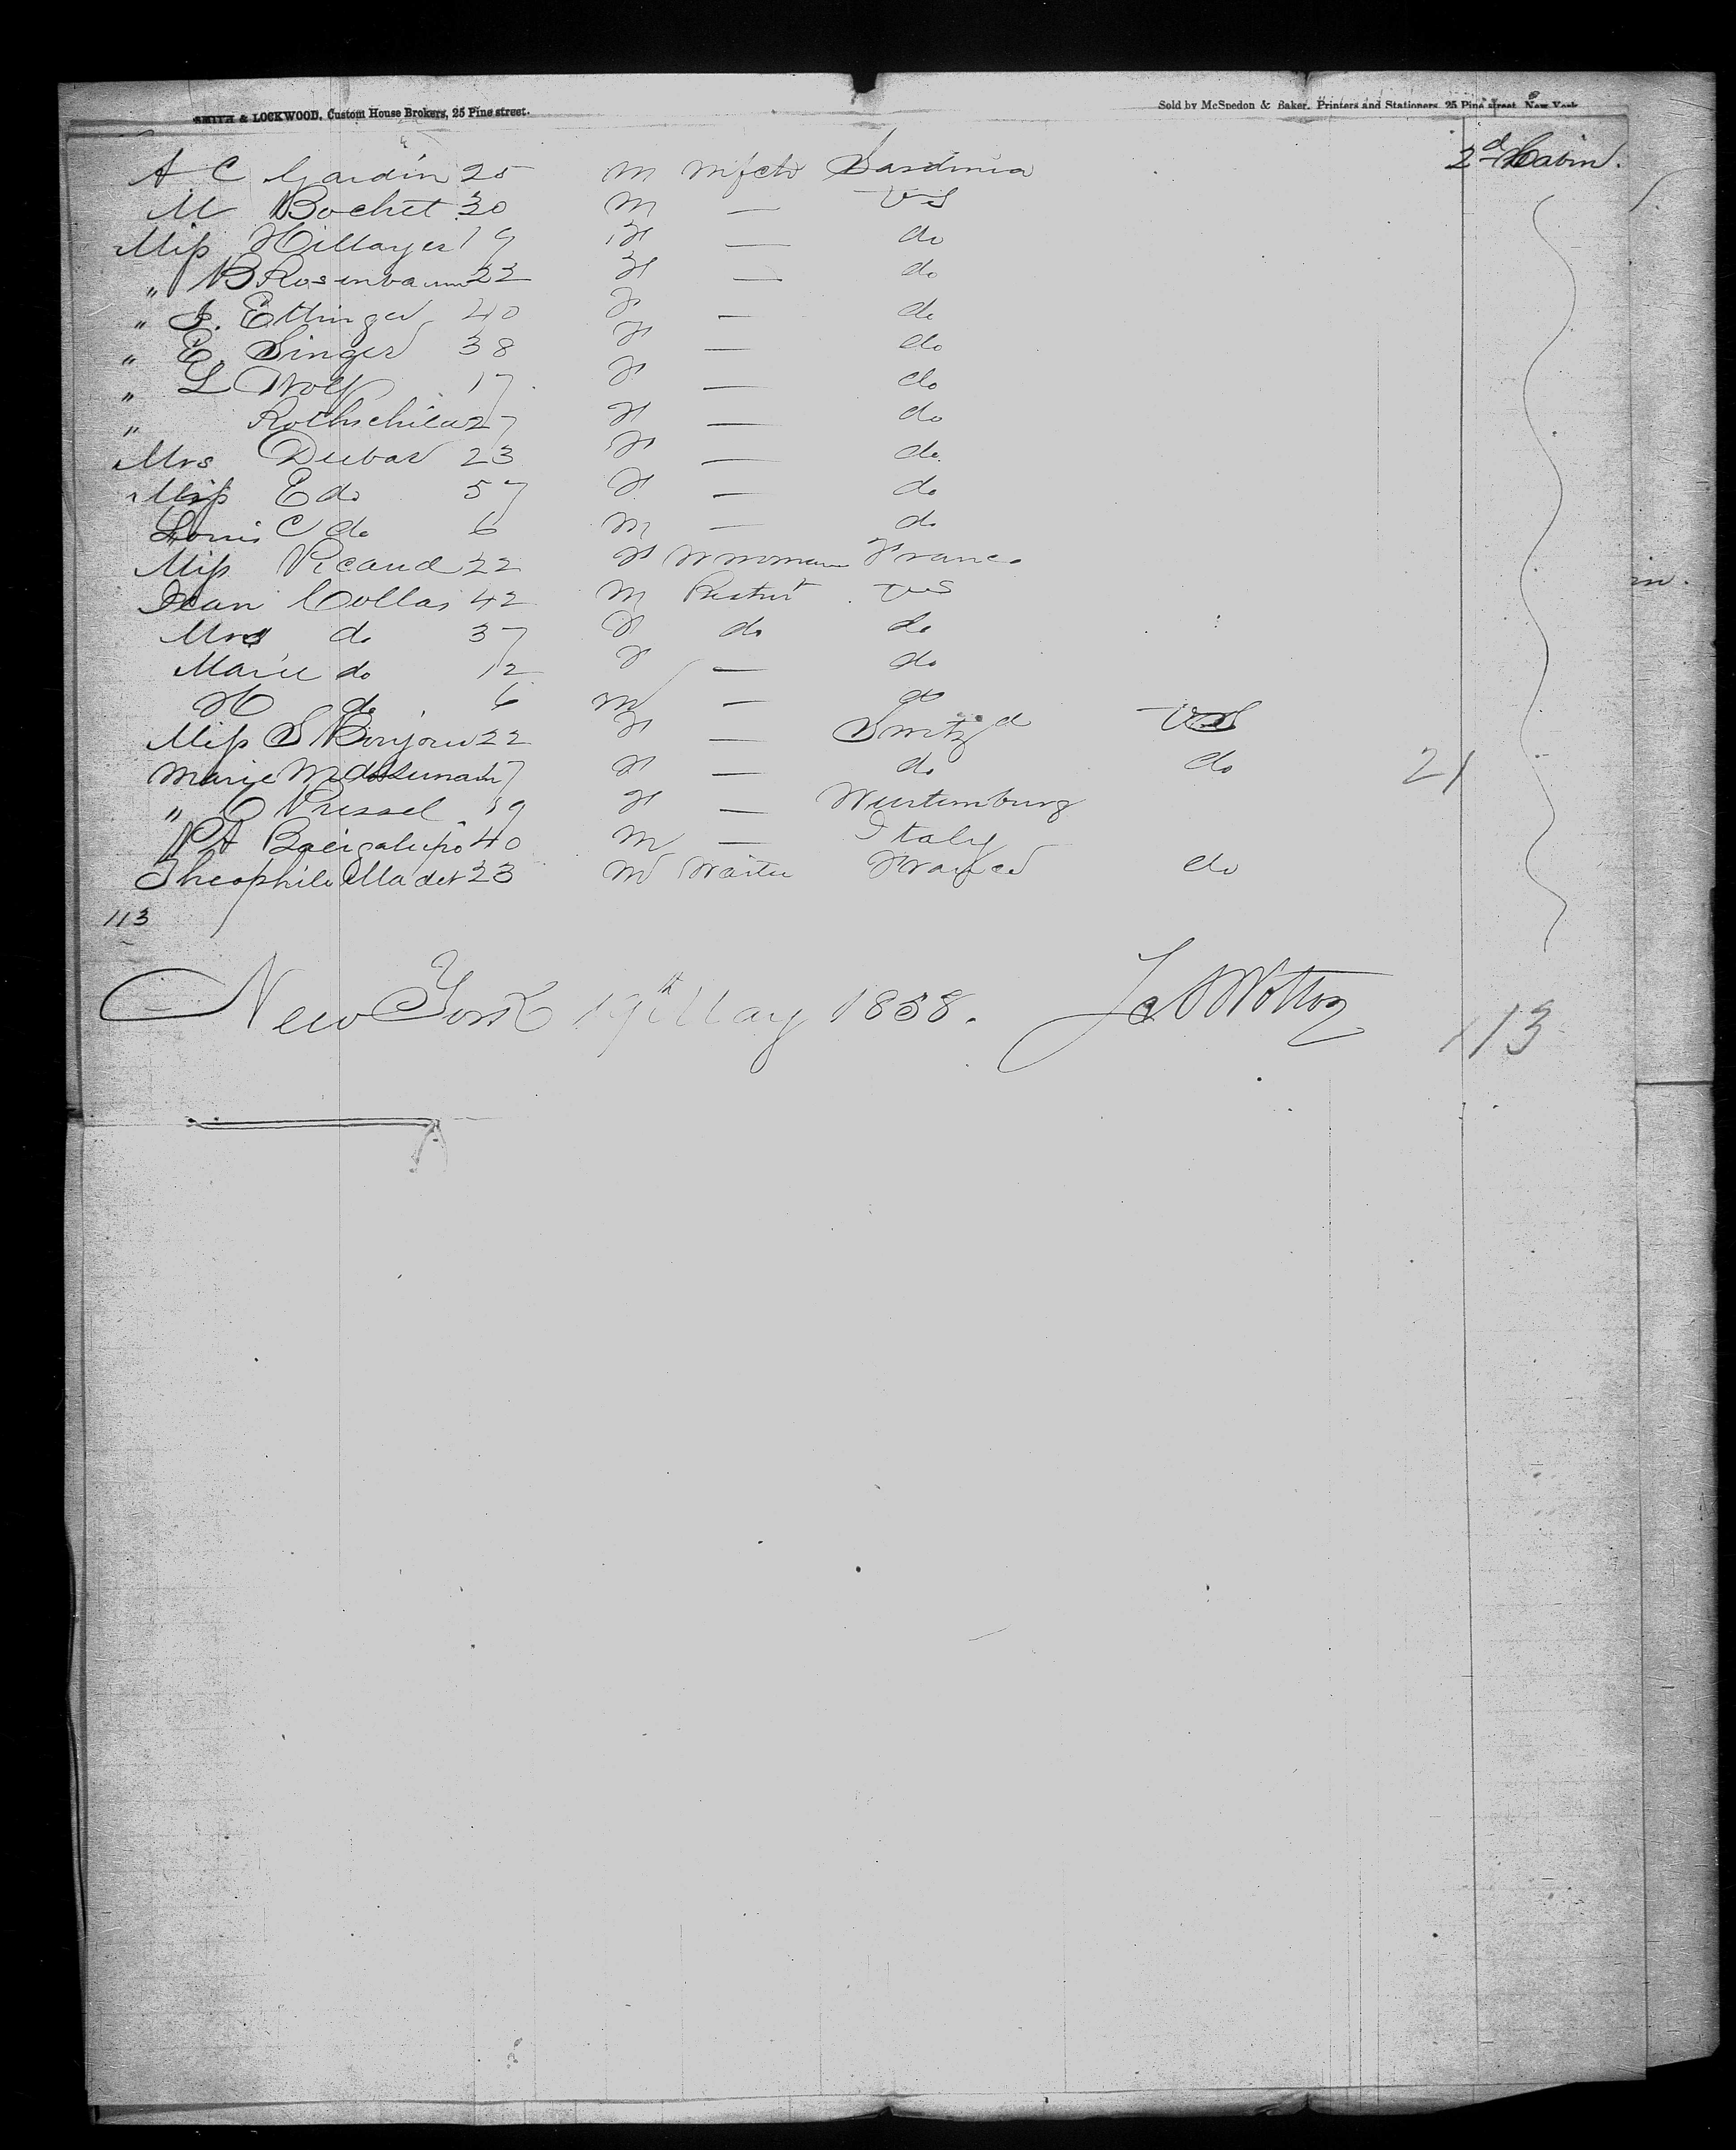 SMITH & LOCKWOOD, Custom House Brokers, 25 Pine street.
Sold by McSpedon & Baker, Printers and Stationers, 25 Pine street, New York
2d Cabin.
A C Gardin 25 M Mfctr Sardinia
M Bochet 30 M — US
Miss Hillayer 19 F — do
" B Rosenbaum 22 F — do
" J. Ettinger 40 F — do
" E. Singer 38 F — do
" L Wolf 17 F — do
" Rothschild 27 F — do
Mrs Dubar 23 F — do
Miss E do 57 F — do
Louis C do 6 M — do
Miss Ricaud 22 F France
Jean Collas 42 M US
Mrs do 37 F do do
Marie do 12 F — do
H do 6 M — do
Miss S Bonjour 22 F — Switzd US
Marie 17 F — do do 21
" C Pressel 19 F — Wurtemburg
P A Bacigalupo 40 M — Italy
Theophile Madet 23 M Waiter France do
113
New York 19th May 1858. Ja A Wotton
113